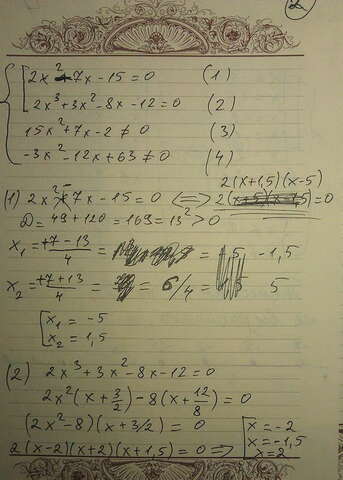 2
2x² - 7x - 15 = 0 (1)
2x³ + 3x² - 8x - 12 = 0 (2)
15x² + 7x - 2 ≠ 0 (3)
-3x² - 12x + 63 ≠ 0 (4)
2(x+1,5)(x-5)
(1) 2x² - 7x - 15 = 0 <=> 2 = 0
D = 49 + 120 = 169 = 13² > 0
x₁ = +7-13/4 = = -1,5
x₂ = +7+13/4 = = 6/4 = 5
x₁ = -5
x₂ = 1,5
(2) 2x³ + 3x² - 8x - 12 = 0
2x²(x + 3/2) - 8(x + 12/8) = 0
(2x² - 8)(x + 3/2) = 0 x = -2
2(x-2)(x+2)(x+1,5) = 0 => x = -1,5
x = 2